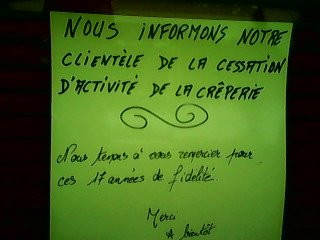 NOUS INFORMONS NOTRE
CLIENTÈLE DE LA CESSATION
D'ACTIVITÉ DE LA CRÊPERIE
Nous tenons à vous remercier pour
ces 17 années de fidélité.
Merci
A bientôt